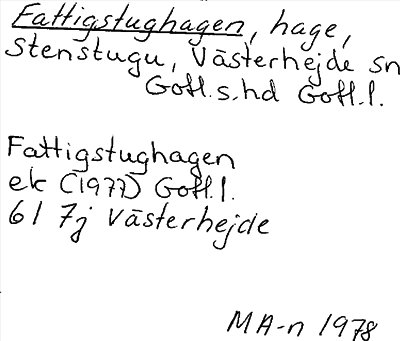 Fattigstughagen, hage,
Stenstugu, Västerhejde sn
Gotl.s.hd Gotl.l.
Fattigstughagen
ek (1977) Gotl.l.
6I 7j Västerhejde
MA-n 1978